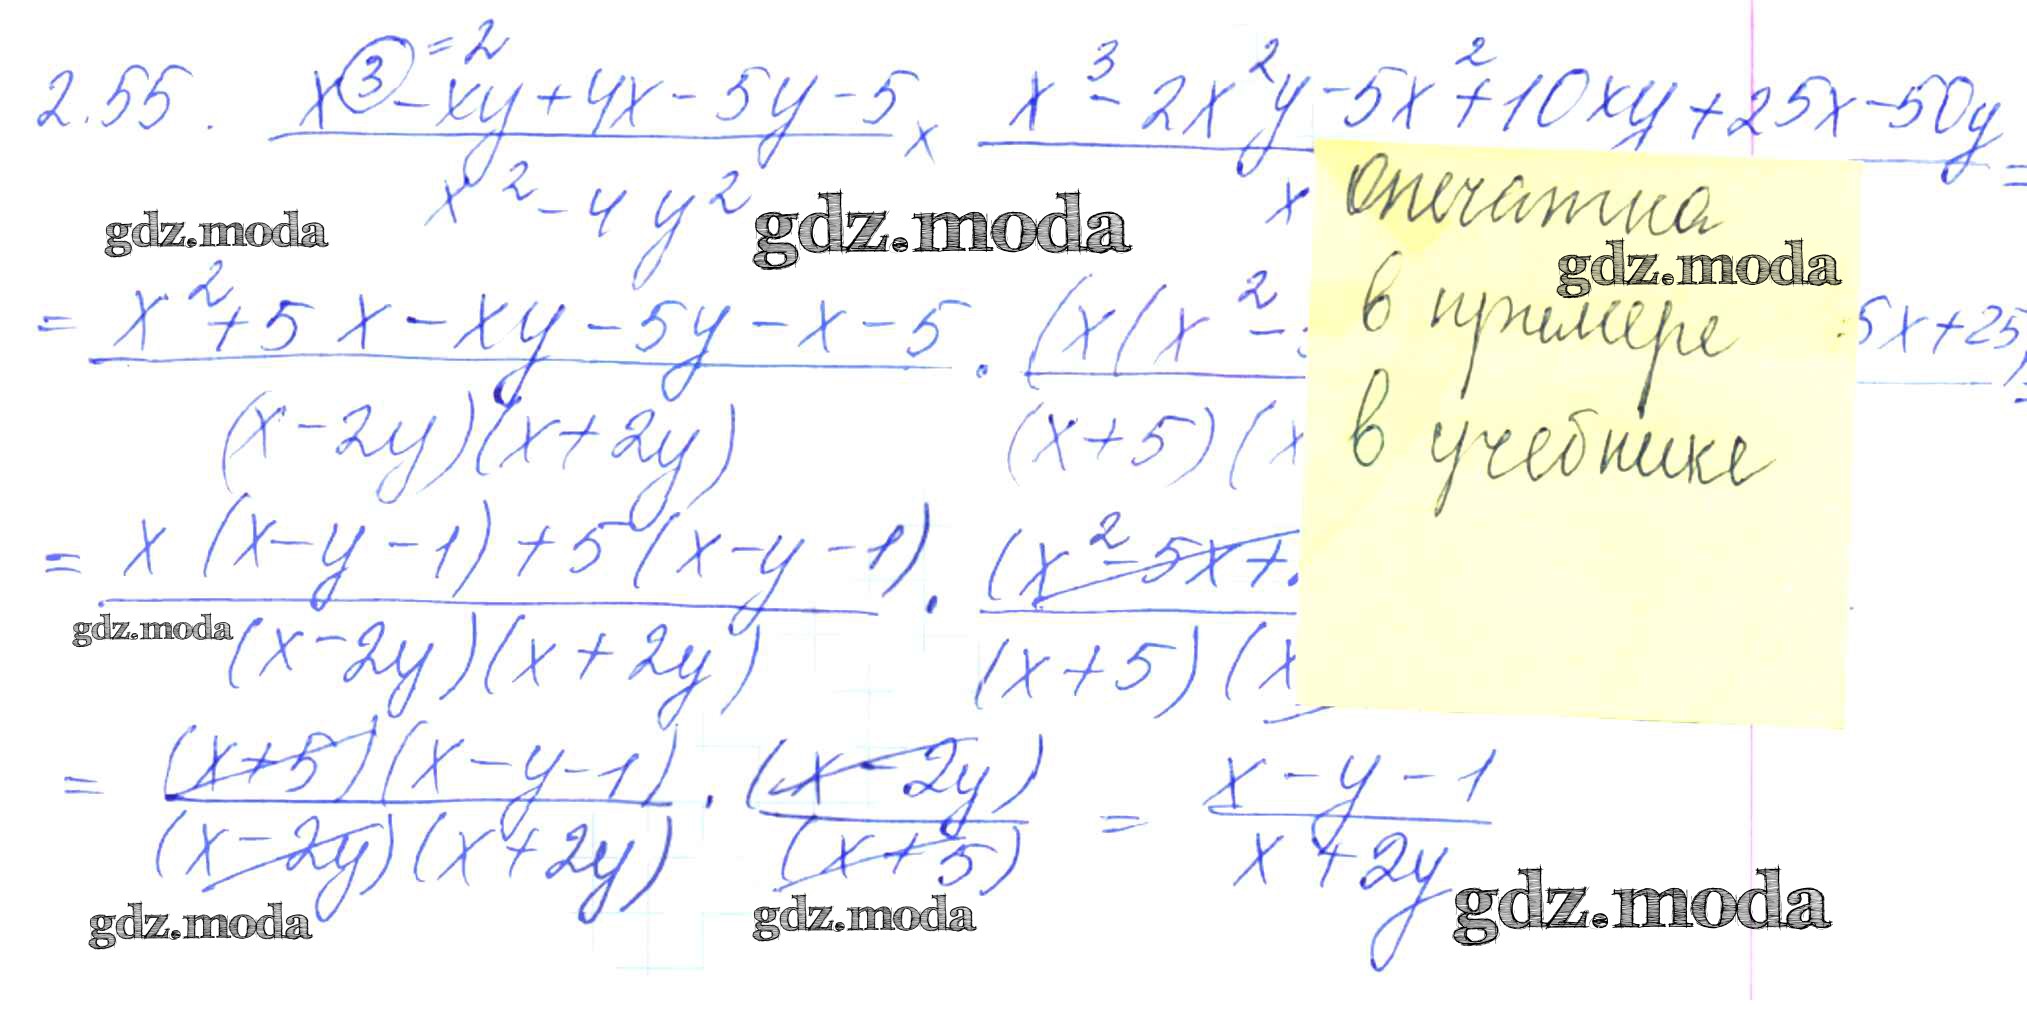 2.55. x③=2 - xy + 4x - 5y - 5 / x² - 4y² × x³ - 2x²y - 5x² + 10xy + 25x - 50y / x =
gdz.moda gdz.moda
опечатка
gdz.moda
в примере
в учебнике
= x² + 5x - xy - 5y - x - 5 / (x - 2y)(x + 2y) · (x(x² - 5x + 25) / (x + 5)(x
= x(x - y - 1) + 5(x - y - 1) / (x - 2y)(x + 2y) · (x² - 5x + / (x + 5)(x
gdz.moda
= (x + 5)(x - y - 1) / (x - 2y)(x + 2y) · (x - 2y) / (x + 5) = x - y - 1 / x + 2y
gdz.moda gdz.moda gdz.moda